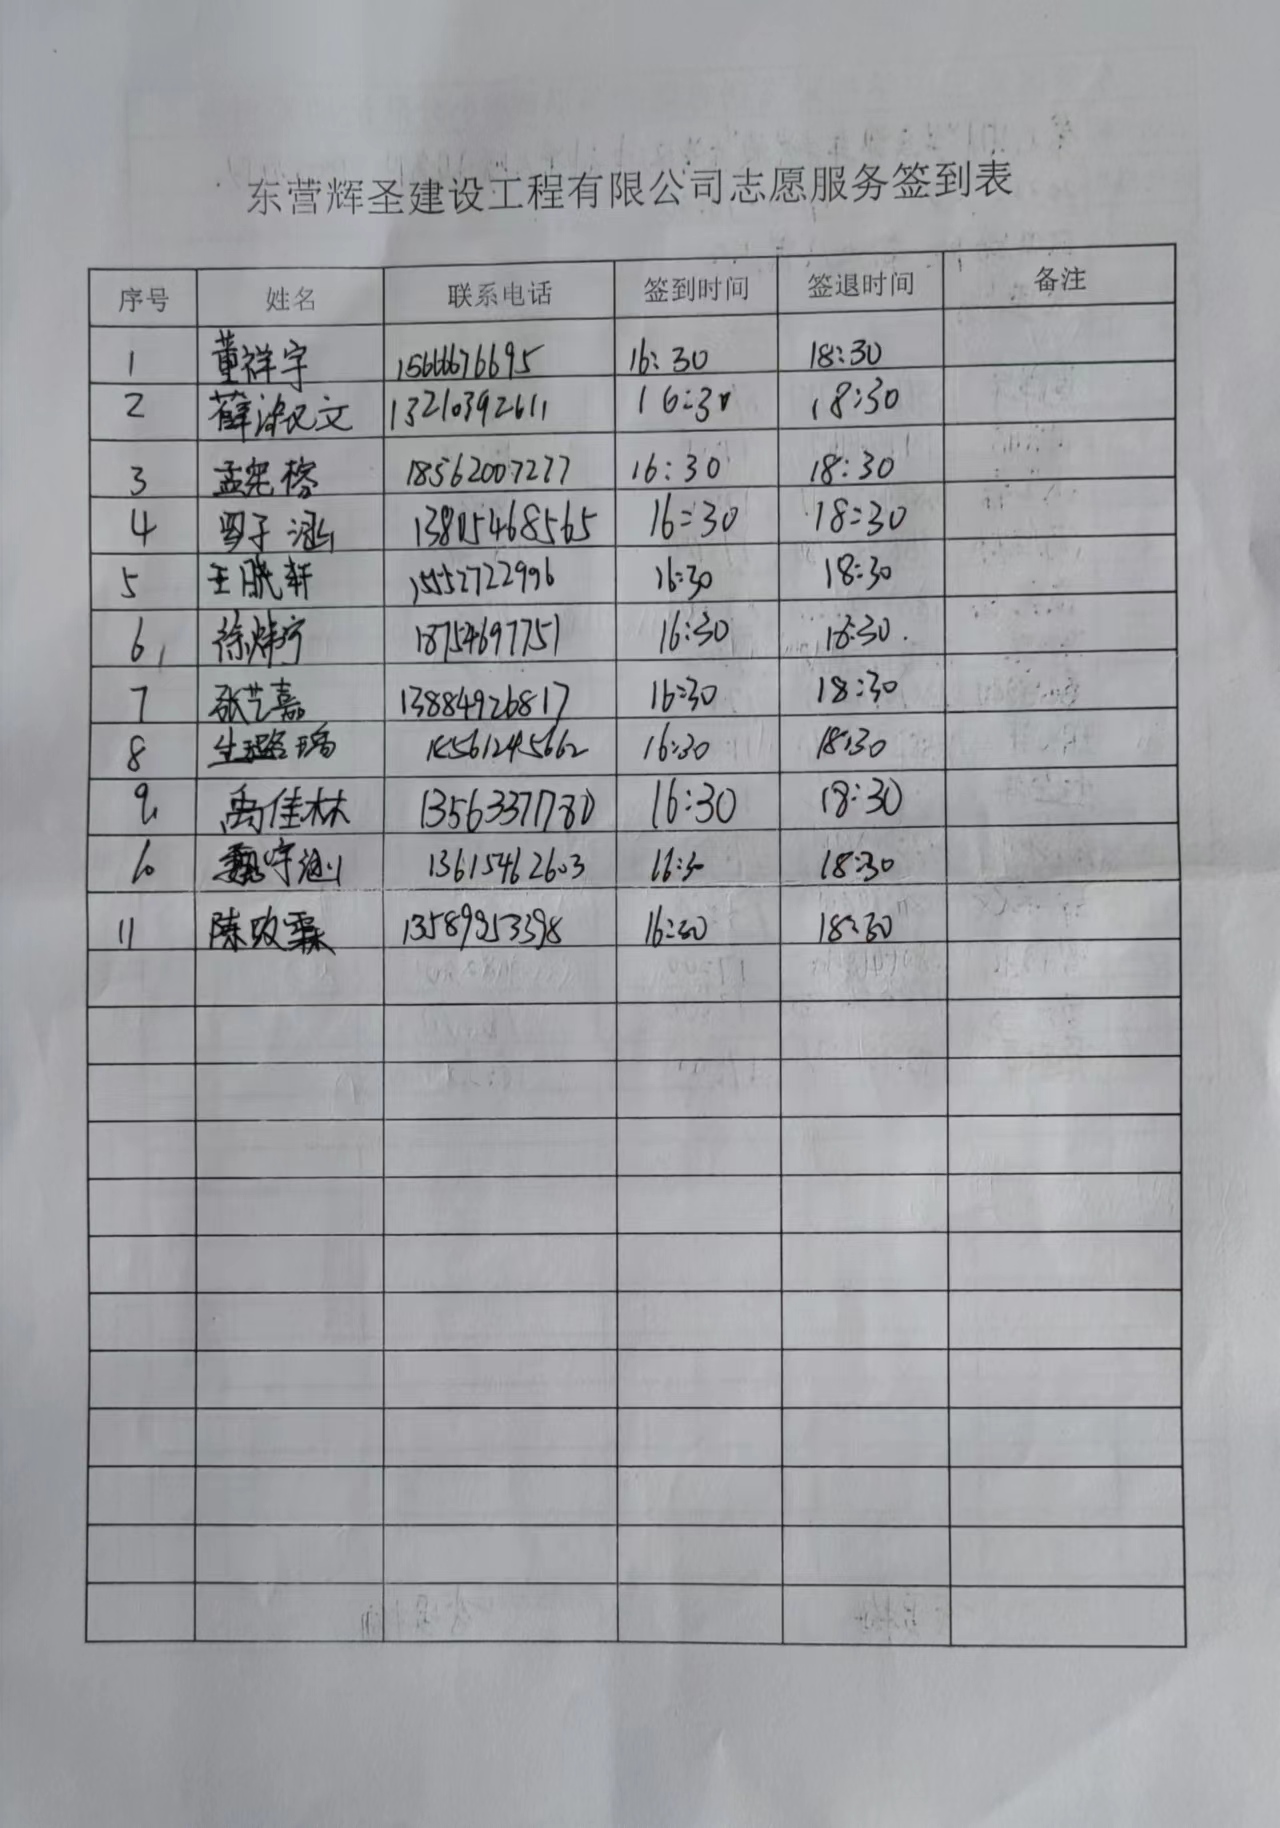 东营辉圣建设工程有限公司志愿服务签到表
序号 姓名 联系电话 签到时间 签退时间 备注
1 董祥宇 15666676695 16:30 18:30
2 薛淑文 13210392611 16:30 18:30
3 孟宪榕 18562007277 16:30 18:30
4 罗子涵 13805468565 16:30 18:30
5 王晓轩 15552722996 16:30 18:30
6 徐炜宁 18754697751 16:30 18:30
7 张艺嘉 13884926817 16:30 18:30
8 生璐瑀 15561245662 16:30 18:30
9 禹佳林 13563371780 16:30 18:30
10 魏宇涵 13615462603 16:30 18:30
11 陈政霖 13589953398 16:30 18:30